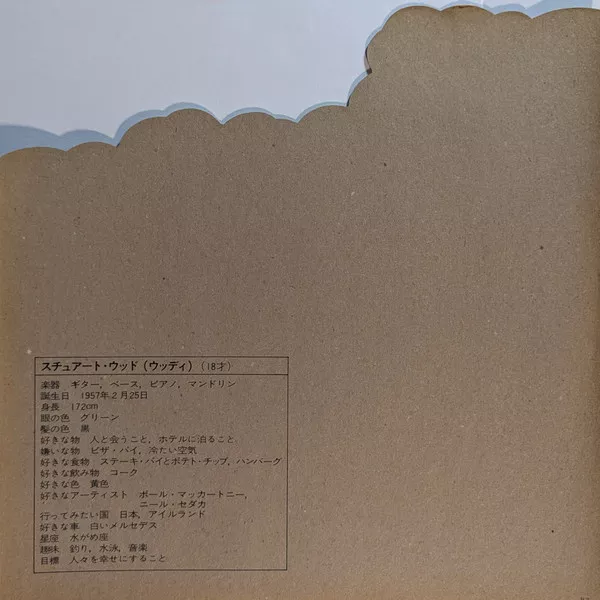 スチュアート・ウッド (ウッディ) (18才)
楽器 ギター, ベース, ピアノ, マンドリン
誕生日 1957年2月25日
身長 172cm
眼の色 グリーン
髪の色 黒
好きな物 人と会うこと, ホテルに泊ること
嫌いな物 ピザ・パイ, 冷たい空気
好きな食物 ステーキ・パイとポテト・チップ, ハンバーグ
好きな飲み物 コーク
好きな色 黄色
好きなアーティスト ポール・マッカートニー,
ニール・セダカ
行ってみたい国 日本, アイルランド
好きな車 白いメルセデス
星座 水がめ座
趣味 釣り, 水泳, 音楽
目標 人々を幸せにすること